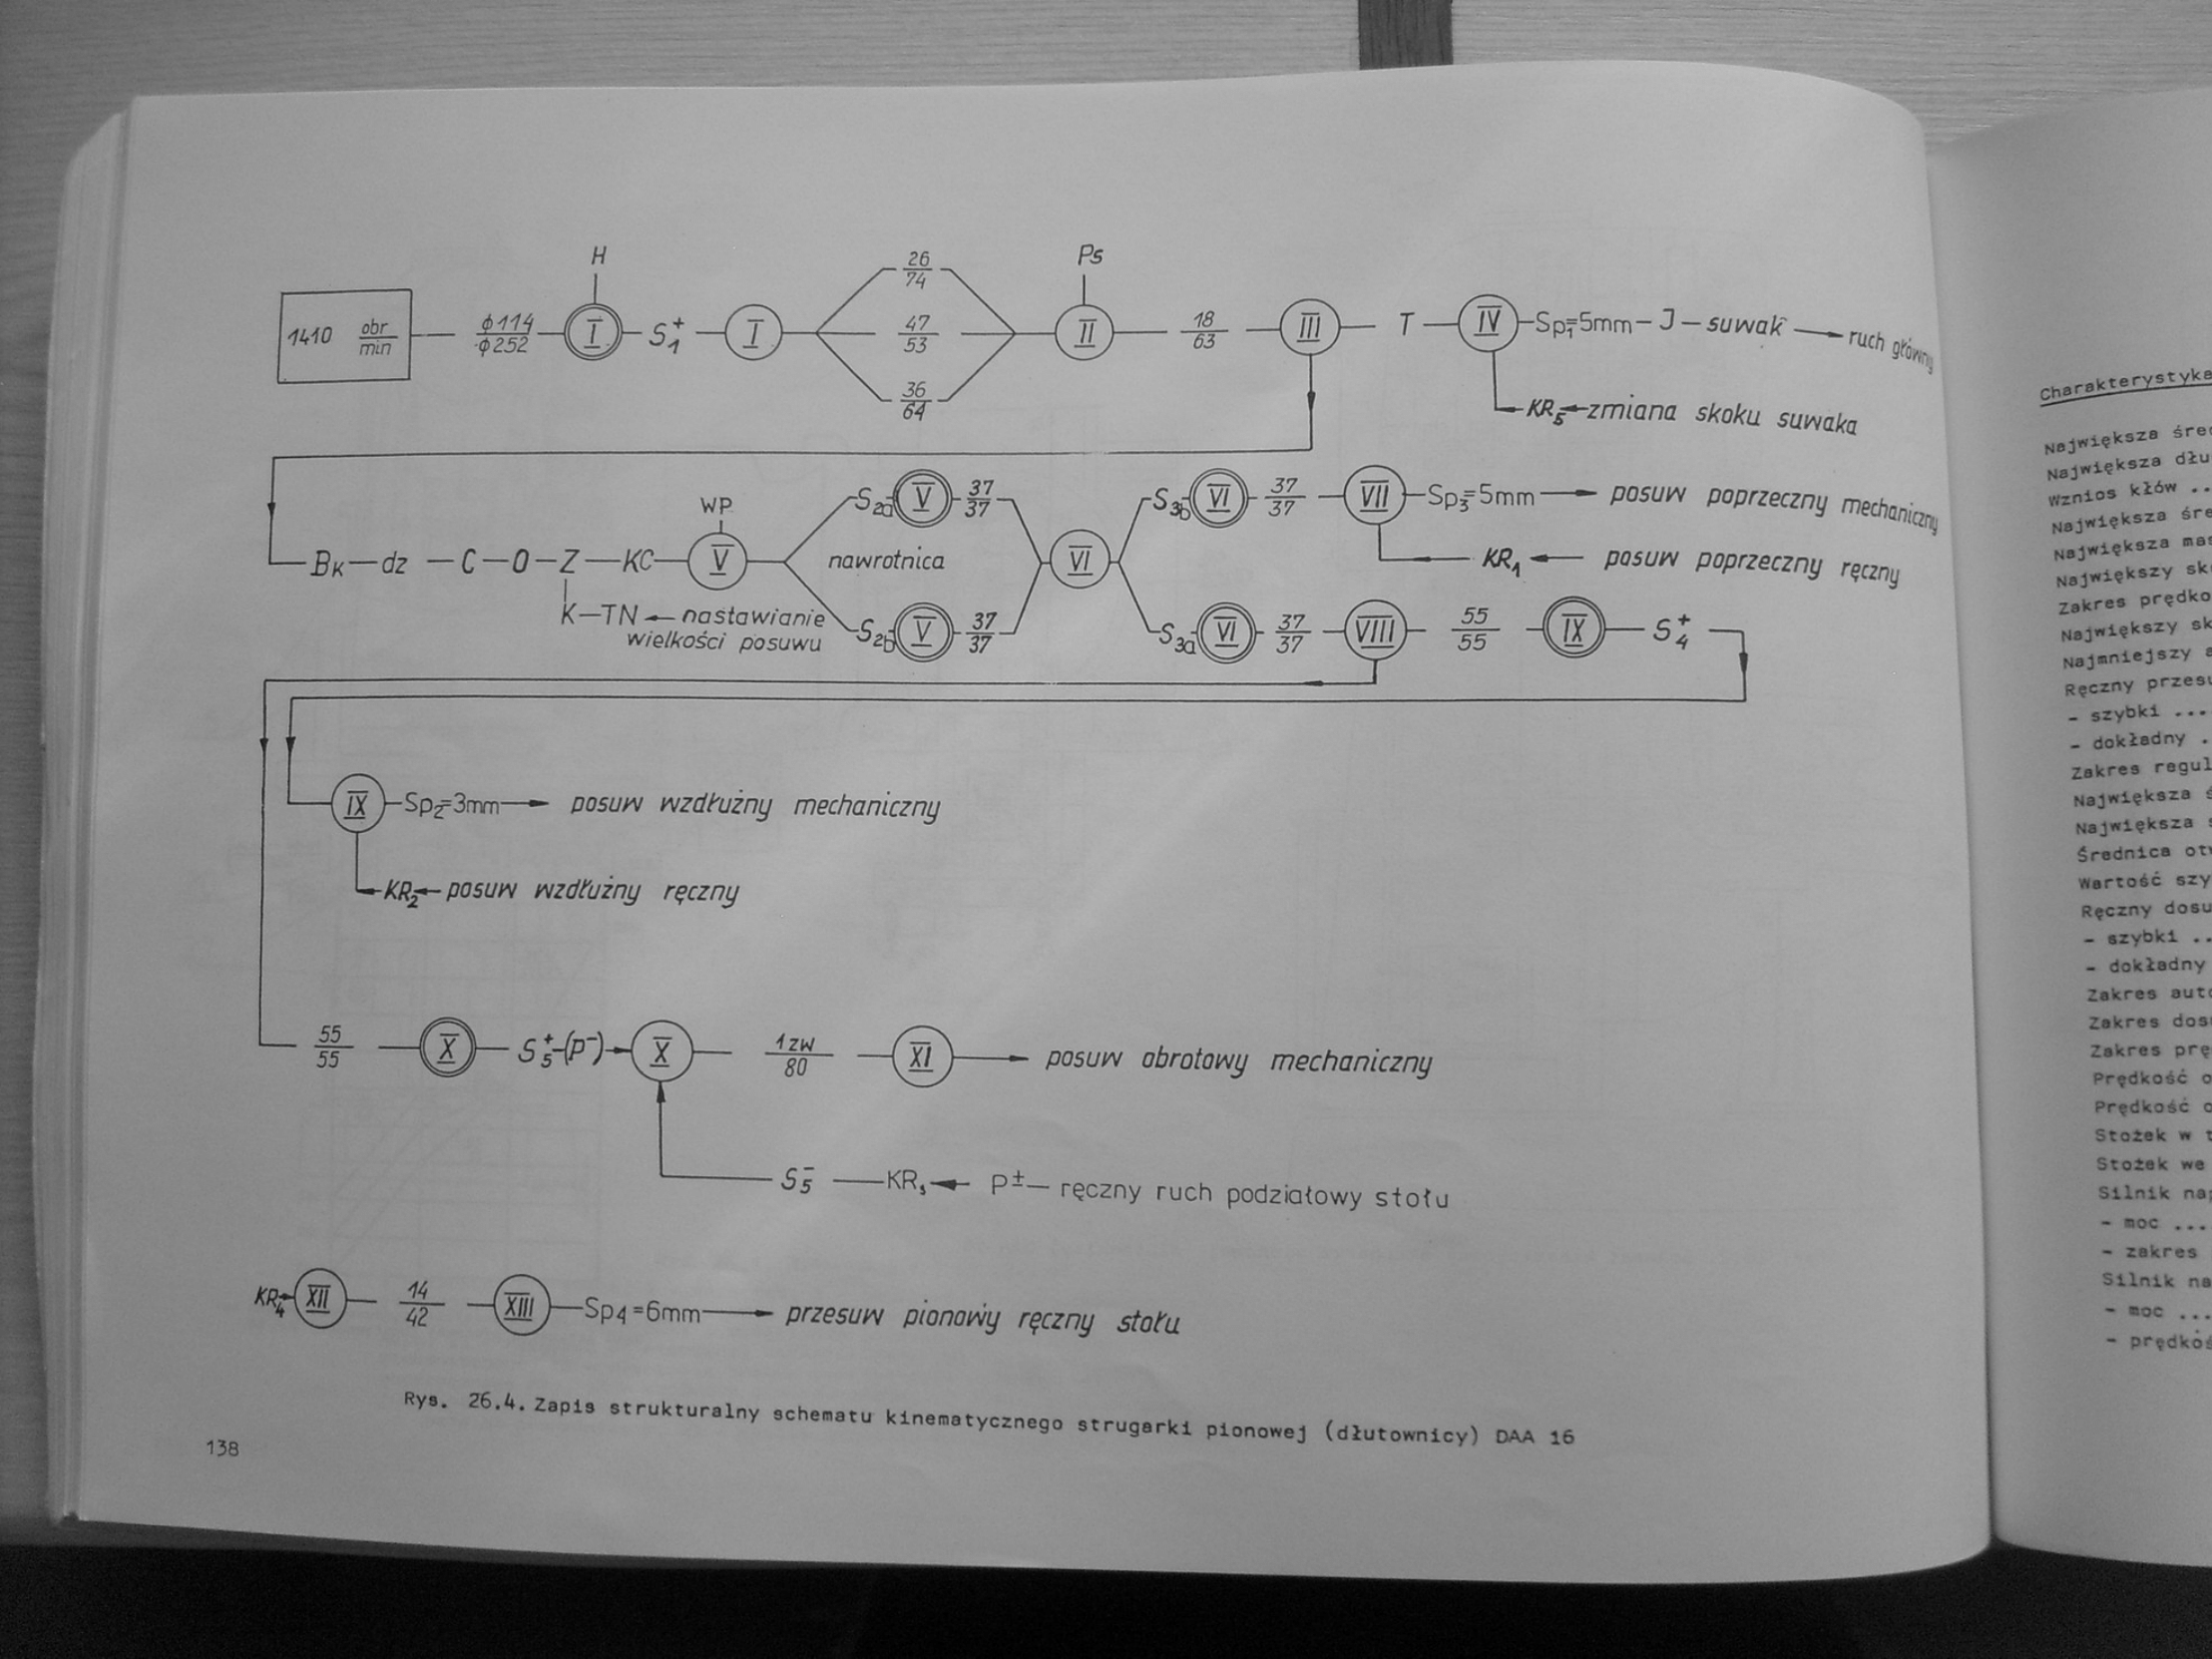 H
Ps
1410 obr/min
φ114/φ252
I
S₁⁺
I
26/74
47/53
36/64
II
18/63
III
T
IV
Sp₁=5mm – J – suwak
ruch główny
KR₅
zmiana skoku suwaka
WP
Bк – dz – C – O – Z – KC
V
nawrotnica
S₂ₐ
V
37/37
S₂b
V
37/37
VI
S₃b
VI
37/37
VII
Sp₃=5mm
posuw poprzeczny mechaniczny
KR₁
posuw poprzeczny ręczny
K – TN
nastawianie
wielkości posuwu
S₃ₐ
VI
37/37
VIII
55/55
IX
S₄⁺
IX
Sp₂=3mm
posuw wzdłużny mechaniczny
KR₂
posuw wzdłużny ręczny
55/55
X
S₅⁺–(P⁻)
X
1zw/80
XI
posuw obrotowy mechaniczny
S₅⁻
KR₃
P± – ręczny ruch podziałowy stołu
KR₄
XII
14/42
XIII
Sp₄=6mm
przesuw pionowy ręczny stołu
Rys. 26.4. Zapis strukturalny schematu kinematycznego strugarki pionowej (dłutownicy) DAA 16
138
Charakterystyka
Największa
Największa
Wznios kłów ..
Największa
Największa
Największy
Zakres
Największy
Najmniejszy
Ręczny
- szybki ...
- dokładny .
Zakres
Największa
Największa
Średnica
Wartość
Ręczny
- szybki ..
- dokładny
Zakres
Zakres
Zakres
Prędkość
Prędkość
Stożek w
Stożek we
Silnik
- moc ...
- zakres
Silnik
- moc ...